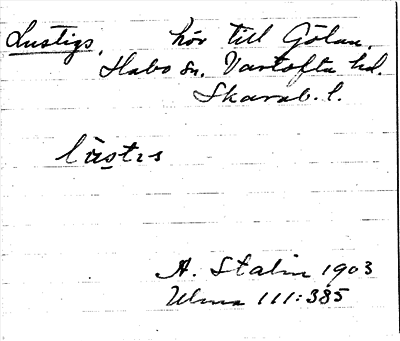 Lustigs, hör till Gölan,
Habo sn, Vartofta hd.
Skarab. l.
lùstis
A. Stalin 1903
Ulma 111:385